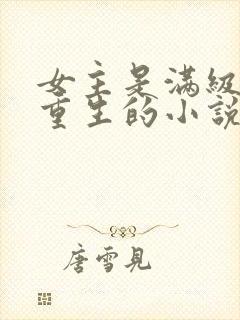 女主是滿級
重生的小說
唐雪見